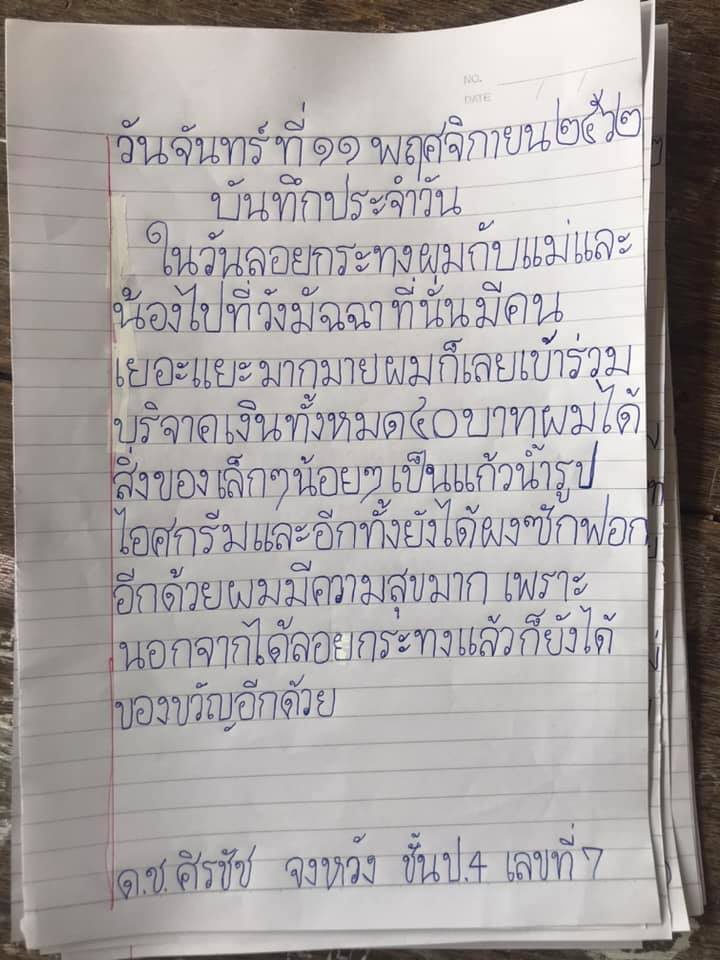 NO.
DATE / /
วันจันทร์ ที่ ๑๑ พฤศจิกายน ๒๕๖๒
บันทึกประจำวัน
ในวันลอยกระทงผมกับแม่และ
น้องไปที่วังมัจฉาที่นั่นมีคน
เยอะแยะมากมายผมก็เลยเข้าร่วม
บริจาคเงินทั้งหมด๔๐บาทผมได้
สิ่งของเล็กๆน้อยๆเป็นแก้วน้ำรูป
ไอศกรีมและอีกทั้งยังได้ผงซักฟอก
อีกด้วยผมมีความสุขมาก เพราะ
นอกจากได้ลอยกระทงแล้วก็ยังได้
ของขวัญอีกด้วย
ด.ช. ศิรชัช จงหวัง ชั้นป.4 เลขที่ 7